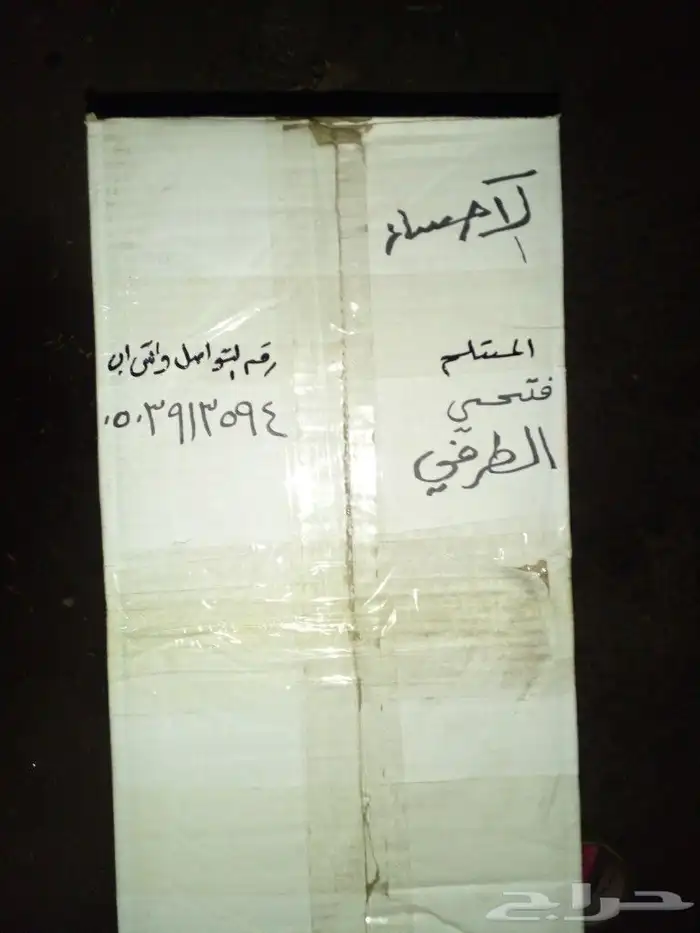 الاحساء
المستلم
فتحي
الطرفي
رقم التواصل واتس اب
٠٥٠٣٩١٣٥٩٤
حراج